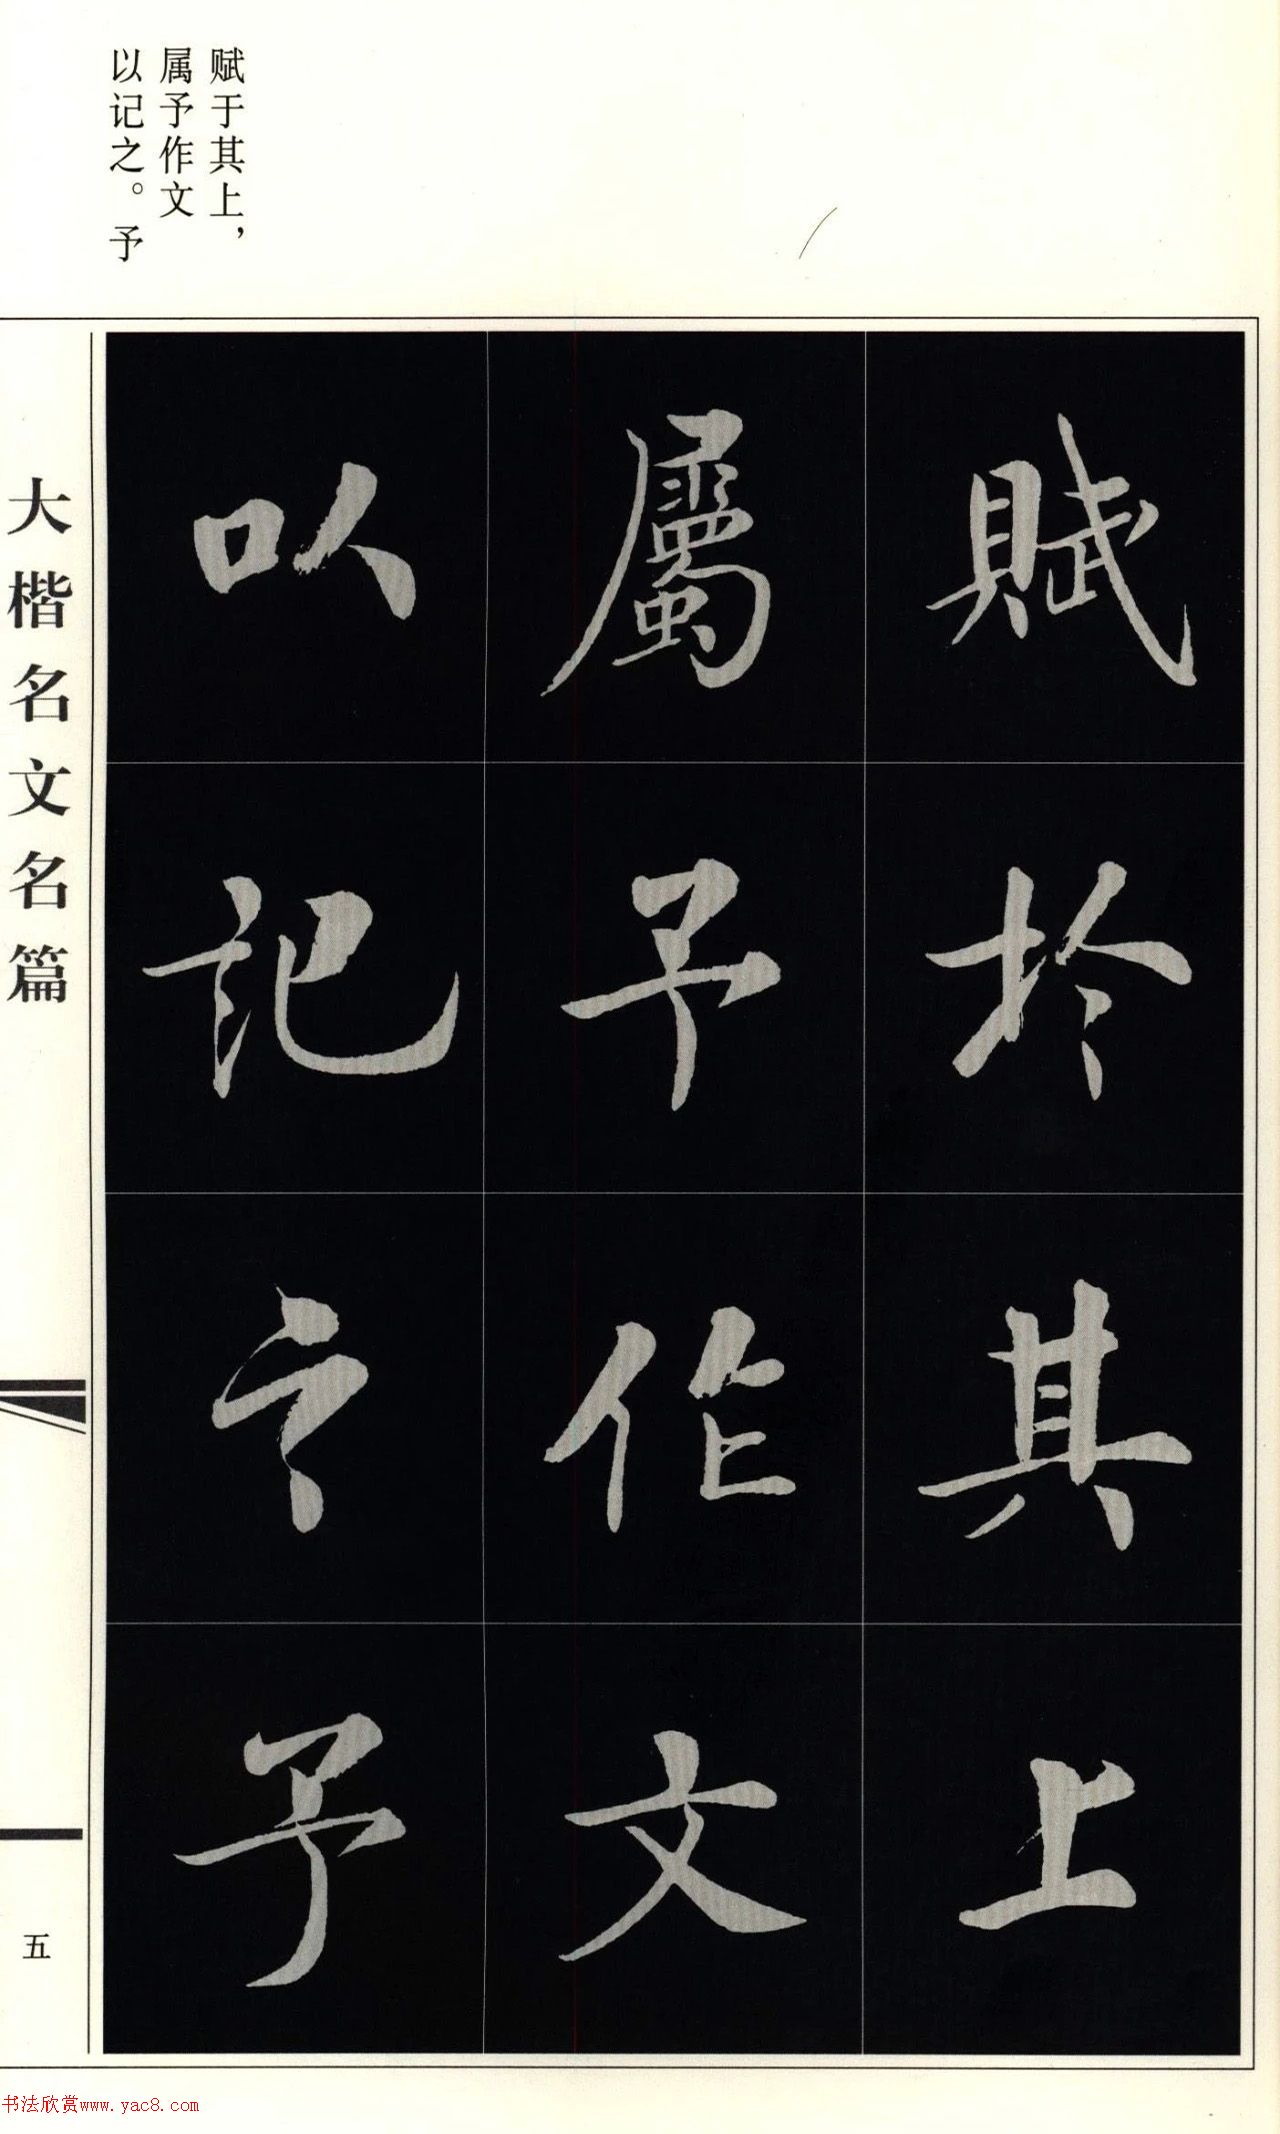 赋于其上，
属予作文
以记之。予
賦於其上
屬予作文
以記之予
大楷名文名篇
五
书法欣赏www.yac8.com